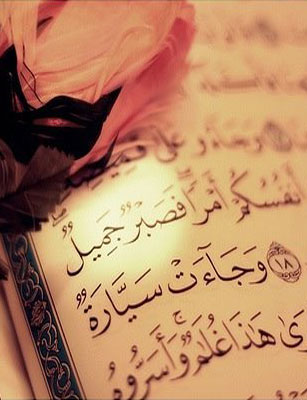 وَجَآءُو عَلَىٰ قَمِيصِهِ
أَنفُسُكُمْ أَمْرًا فَصَبْرٌ جَمِيلٌ
١٨ وَجَآءَتْ سَيَّارَةٌ
هَٰذَا غُلَٰمٌ وَأَسَرُّوهُ